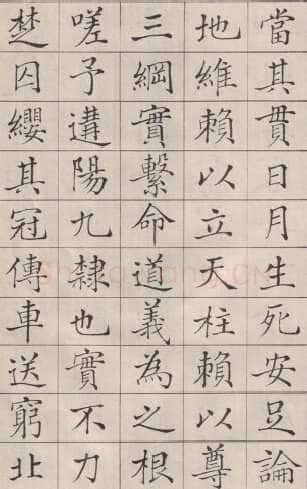 當其貫日月生死安足論
地維賴以立天柱賴以尊
三綱實繫命道義為之根
嗟予遘陽九隸也實不力
楚囚纓其冠傳車送窮北